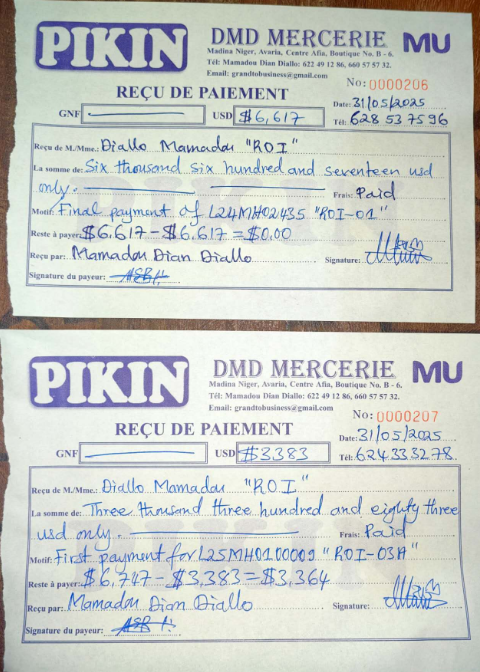 PIKIN
DMD MERCERIE MU
Madina Niger, Avaria, Centre Afia, Boutique No. B - 6,
Tél: Mamadou Dian Diallo: 622 49 12 86, 660 57 57 32.
Email: grandtobusiness@gmail.com
No: 0000206
REÇU DE PAIEMENT
Date: 31/05/2025
GNF USD $6,617 Tél: 628 53 75 96
Reçu de M./Mme.: Diallo Mamadou "ROI"
La somme de: Six thousand six hundred and seventeen usd
only. Frais: Paid
Motif: Final payment of L24MH02435 "ROI-01"
Reste à payer: $6,617 - $6,617 = $0.00
Reçu par: Mamadou Dian Diallo Signature:
Signature du payeur:
PIKIN
DMD MERCERIE MU
Madina Niger, Avaria, Centre Afia, Boutique No. B - 6,
Tél: Mamadou Dian Diallo: 622 49 12 86, 660 57 57 32.
Email: grandtobusiness@gmail.com
No: 0000207
REÇU DE PAIEMENT
Date: 31/05/2025
GNF USD $3,383 Tél: 624 333 278
Reçu de M./Mme.: Diallo Mamadou "ROI"
La somme de: Three thousand three hundred and eighty three
usd only. Frais: Paid
Motif: First payment for L25MH0100009 "ROI-03A"
Reste à payer: $6,747 - $3,383 = $3,364
Reçu par: Mamadou Dian Diallo Signature:
Signature du payeur: